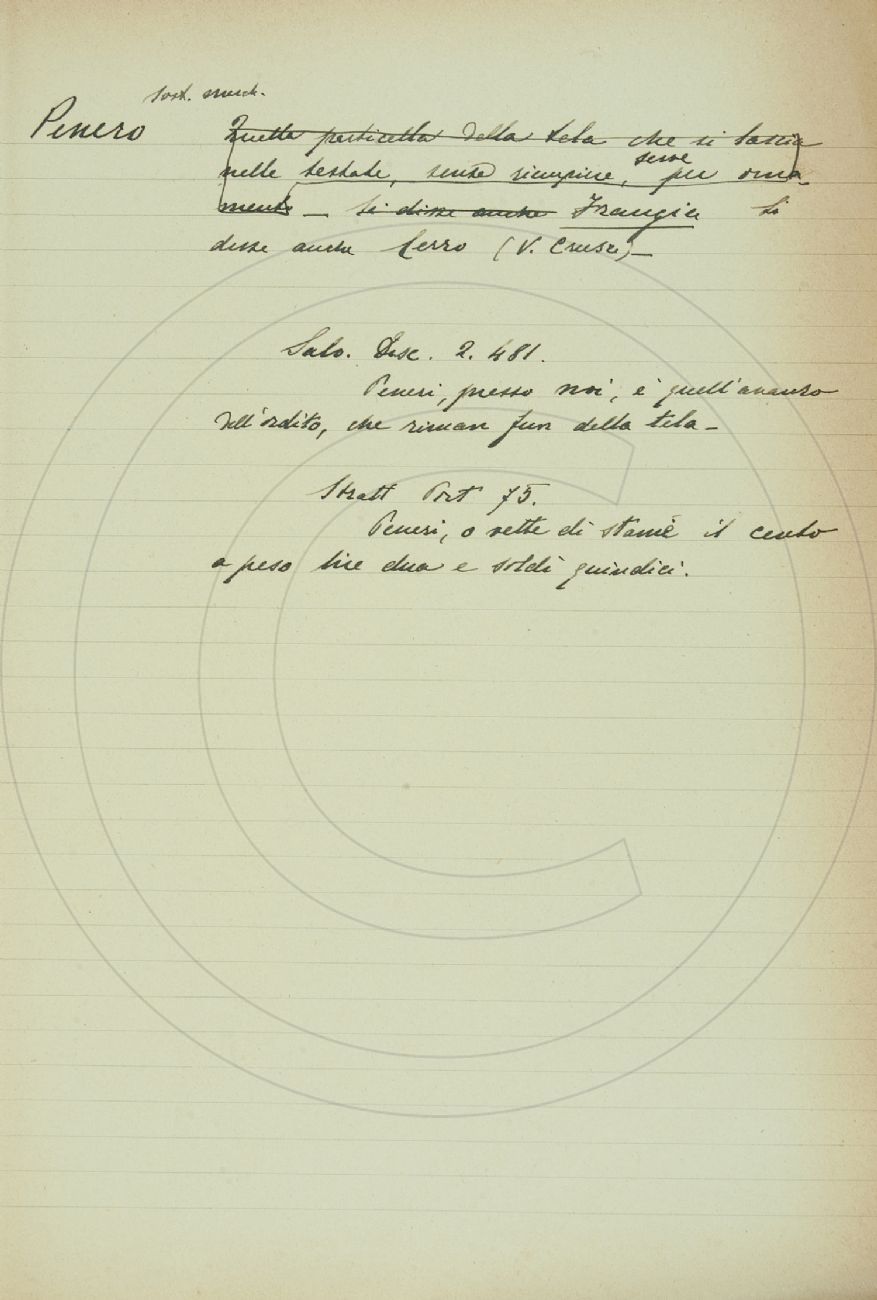 Sost. masch.
Penero Quella particella della tela che si lascia
nelle testate, senza riempire, serve per orna-
mento — Si disse anche Frangia Si
disse anche Cerro (V. Crusc.) —
Salv. Disc. 2. 481.
Peneri, presso noi, è quell'avanzo
dell'ordito, che riman fuor della tela —
Stratt Port 75.
Peneri, o vette di stame il cento
a peso lire dua e soldi quindici.